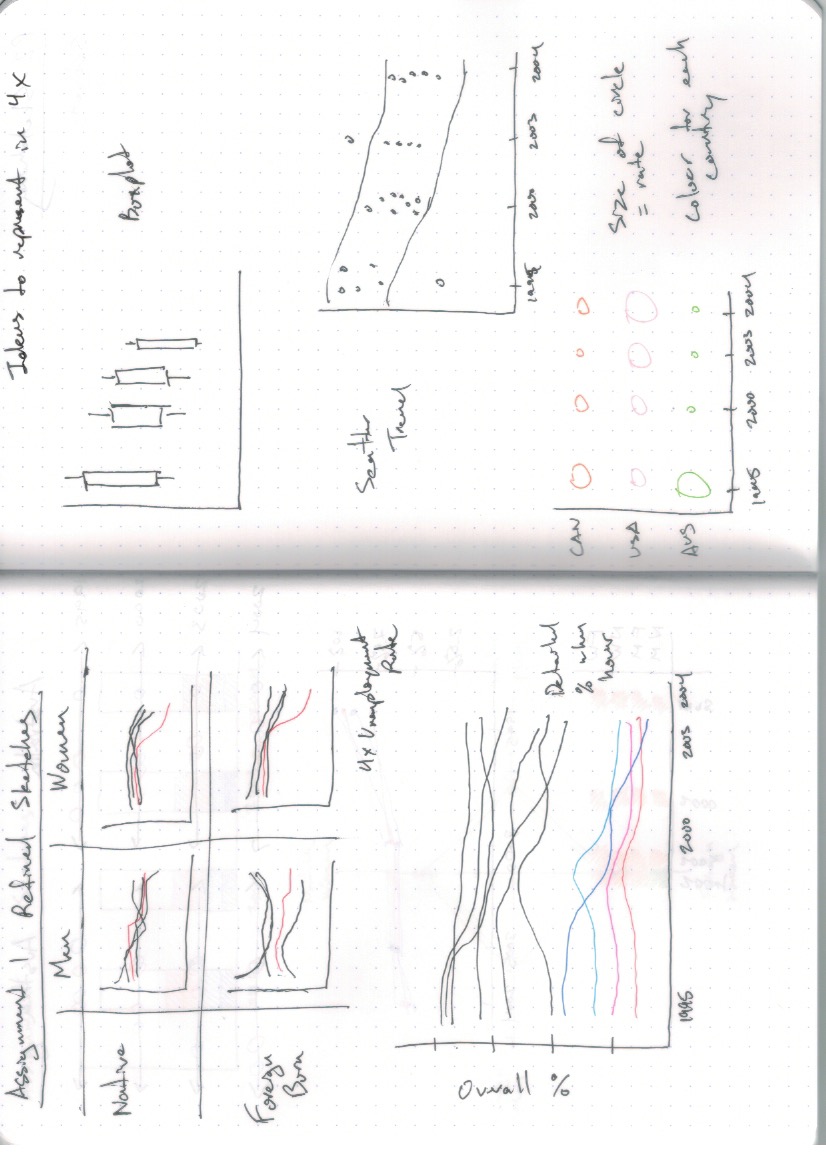 Assignment 1 Refined Sketches
Men Women
Native
Foreign
Born
4x Unemployment
Rate
Overall %
Detailed
% when
hover
1995 2000 2003 2004
Ideas to represent in 4x
Boxplot
Scatter
Trend
1995 2000 2003 2004
CAN
USA
AUS
1995 2000 2003 2004
Size of circle
= rate
Colour for each
country